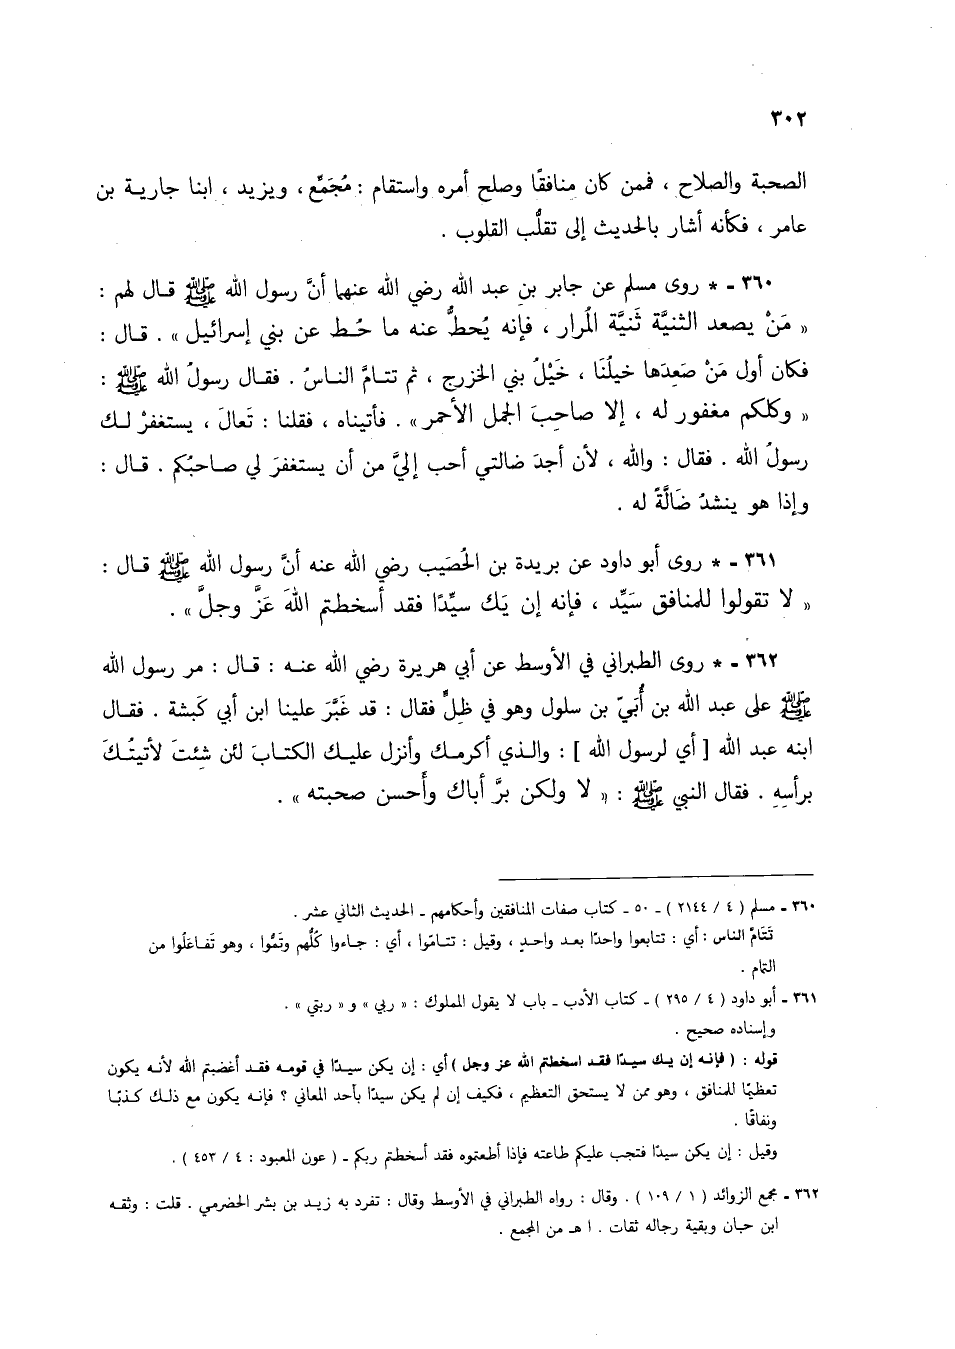 ٣٠٢
الصحبة والصلاح ، فممن كان منافقًا وصلح أمره واستقام : مُجَمِّع ، ويزيد ، ابنا جارية بن
عامر ، فكأنه أشار بالحديث إلى تقلُّب القلوب .
٣٦٠ - * روى مسلم عن جابر بن عبد الله رضي الله عنهما أنَّ رسول الله ﷺ قال لهم :
« مَنْ يصعد الثنيَّة ثَنيَّة المُرار ، فإنه يُحطُّ عنه ما حُط عن بني إسرائيل » . قال :
فكان أول مَنْ صَعِدَها خيلُنَا ، خَيْلُ بني الخزرج ، ثم تتامَّ الناسُ . فقال رسولُ الله ﷺ :
« وكلكم مغفور له ، إلا صاحِبَ الجمل الأحمر » . فأتيناه ، فقلنا : تَعالَ ، يستغفرْ لك
رسولُ الله . فقال : والله ، لأن أجدَ ضالتي أحب إليَّ من أن يستغفرَ لي صاحبُكم . قال :
وإذا هو ينشدُ ضَالَّةً له .
٣٦١ - * روى أبو داود عن بريدة بن الحُصَيب رضي الله عنه أنَّ رسول الله ﷺ قال :
« لا تقولوا للمنافق سَيِّد ، فإنه إن يَك سيِّدًا فقد أسخطتم اللهَ عَزَّ وجلَّ » .
٣٦٢ - * روى الطبراني في الأوسط عن أبي هريرة رضي الله عنه : قال : مر رسول الله
ﷺ على عبد الله بن أُبَيّ بن سلول وهو في ظِلٍّ فقال : قد غَبَّرَ علينا ابن أبي كَبشة . فقال
ابنه عبد الله [ أي لرسول الله ] : والذي أكرمك وأنزل عليك الكتابَ لئن شئتَ لأتيتُكَ
برأسِهِ . فقال النبي ﷺ : « لا ولكن برَّ أباك وأَحسن صحبته » .
٣٦٠ - مسلم ( ٤ / ٢١٤٤ ) - ٥٠ - كتاب صفات المنافقين وأحكامهم - الحديث الثاني عشر .
تَتَامَّ الناس : أي : تتابعوا واحدًا بعد واحدٍ ، وقيل : تتامّوا ، أي : جاءوا كُلُّهم وتَمُّوا ، وهو تَفاعَلُوا من
التمام .
٣٦١ - أبو داود ( ٤ / ٢٩٥ ) - كتاب الأدب - باب لا يقول المملوك : « ربي » و « ربتي » .
وإسناده صحيح .
قوله : ( فإنه إن يك سيدًا فقد اسخطتم الله عز وجل ) أي : إن يكن سيدًا في قومه فقد أغضبتم الله لأنه يكون
تعظيمًا للمنافق ، وهو ممن لا يستحق التعظيم ، فكيف إن لم يكن سيدًا بأحد المعاني ؟ فإنه يكون مع ذلك كذبًا
ونفاقًا .
وقيل : إن يكن سيدًا فتجب عليكم طاعته فإذا أطعتموه فقد أسخطتم ربكم - ( عون المعبود : ٤ / ٤٥٣ ) .
٣٦٢ - مجمع الزوائد ( ١ / ١٠٩ ) . وقال : رواه الطبراني في الأوسط وقال : تفرد به زيد بن بشر الحضرمي . قلت : وثقه
ابن حبان وبقية رجاله ثقات . ا هـ من المجمع .